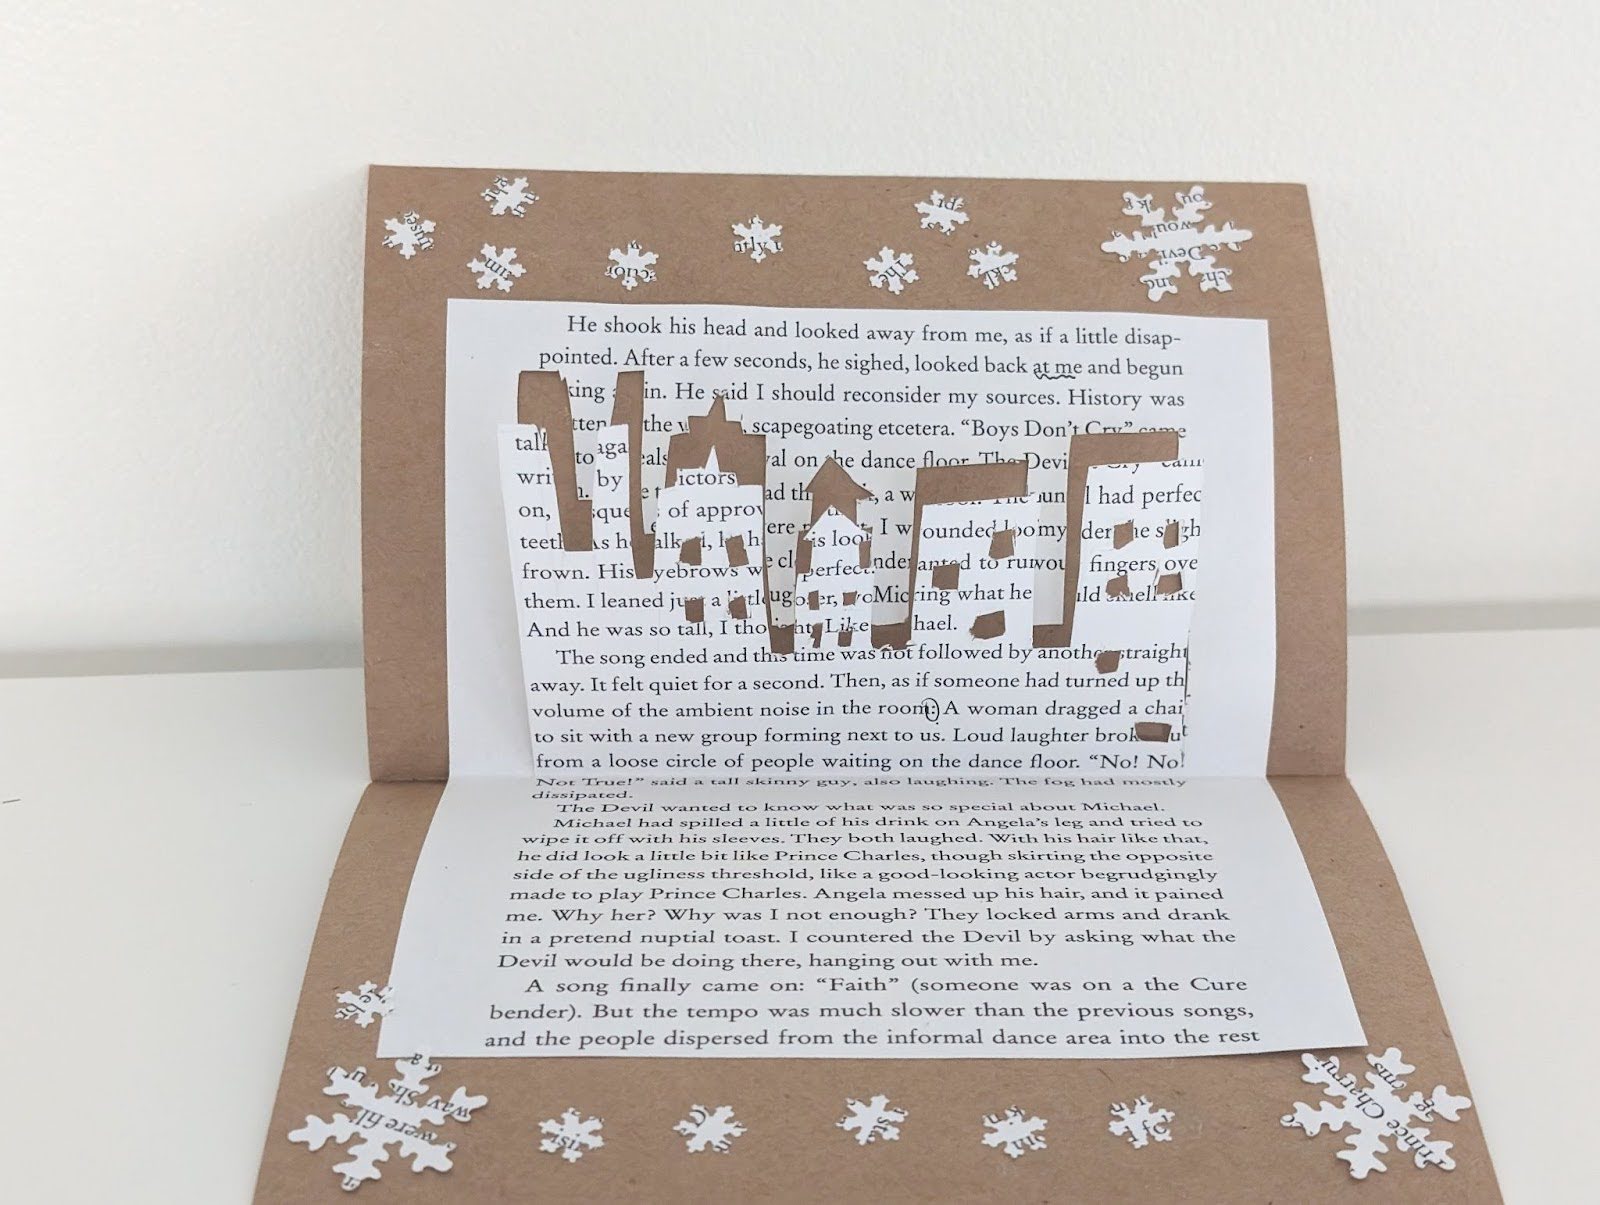 He shook his head and looked away from me, as if a little disap-
pointed. After a few seconds, he sighed, looked back at me and begun
talking again. He said I should reconsider my sources. History was
written by the victors, scapegoating etcetera. “Boys Don’t Cry” came
on, to squeals of approval on the dance floor. The Devil had perfect
teeth. As he talked, I
frown. His eyebrows were perfect. I wanted to run my fingers over
them. I leaned just a little closer, what he smell like
And he was so tall, I thought. Like Michael.
The song ended and this time was not followed by another straight
away. It felt quiet for a second. Then, as if someone had turned up th
volume of the ambient noise in the room: A woman dragged a chai
to sit with a new group forming next to us. Loud laughter broke out
from a loose circle of people waiting on the dance floor. “No! No!
Not True!” said a tall skinny guy, also laughing. The fog had mostly
dissipated.
The Devil wanted to know what was so special about Michael.
Michael had spilled a little of his drink on Angela’s leg and tried to
wipe it off with his sleeves. They both laughed. With his hair like that,
he did look a little bit like Prince Charles, though skirting the opposite
side of the ugliness threshold, like a good-looking actor begrudgingly
made to play Prince Charles. Angela messed up his hair, and it pained
me. Why her? Why was I not enough? They locked arms and drank
in a pretend nuptial toast. I countered the Devil by asking what the
Devil would be doing there, hanging out with me.
A song finally came on: “Faith” (someone was on a the Cure
bender). But the tempo was much slower than the previous songs,
and the people dispersed from the informal dance area into the rest